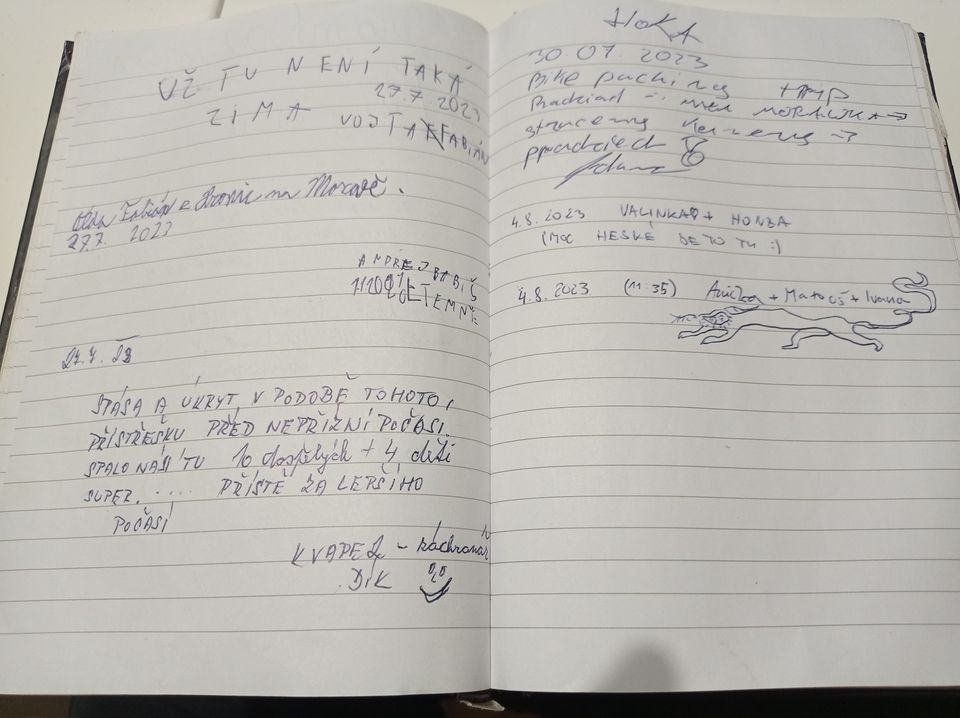 UŽ TU NENÍ TAKÁ
27.7.2023
ZIMA VOJTA FABIÁN
Fabián z na Moravě.
27.7. 2023
ANDREJ BABIŠ
LETEMNĚ
27.7. 23
SPÁSA A ÚKRYT V PODOBĚ TOHOTO
PŘÍSTŘEŠKU PŘED NEPŘÍZNÍ POČASÍ.
SPALO NÁS TU 10 dospělých + 4 děti
SUPER. .... PŘÍŠTĚ ZA LEPŠÍHO
POČASÍ
KVAPEL - záchranář
DÍK
HOKA
30.07.2023
Bike packing
MORAWKA →
pradziad
4.8.2023 VALINKA + HONZA
(MOC HESKÉ DE TO TU :)
4.8.2023 (11:35) Anička + Matouš + Ivana